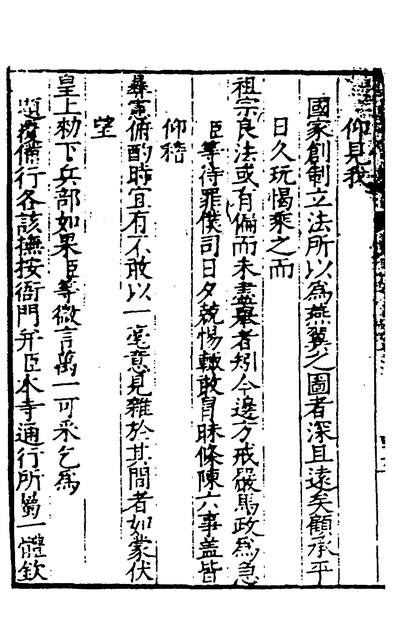 仰見我
國家創制立法所以為燕翼之圖者深且遠矣顧承平
日久玩愒乘之而
祖宗良法或有偏而未盡舉者矧今邊方戒嚴馬政為急
臣等待罪僕司日夕兢惕輙敢冒昧條陳六事盖皆
仰稽
彝憲俯酌時宜有不敢以一毫意見雜於其間者如蒙伏
望
皇上勑下兵部如果臣等微言萬一可采乞為
題覆備行各該撫按衙門并臣本寺通行所屬一體欽